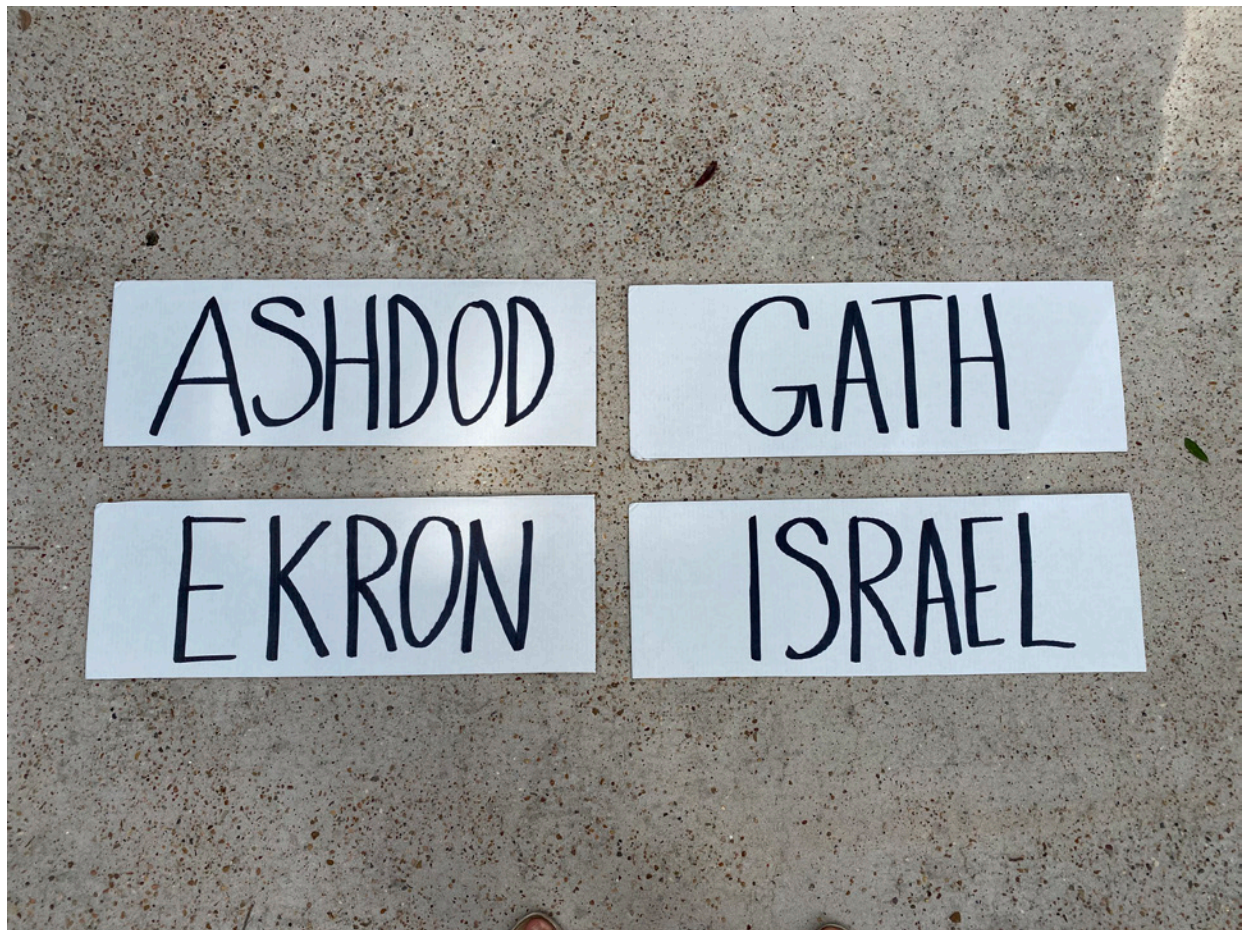 ASHDOD
GATH
EKRON
ISRAEL